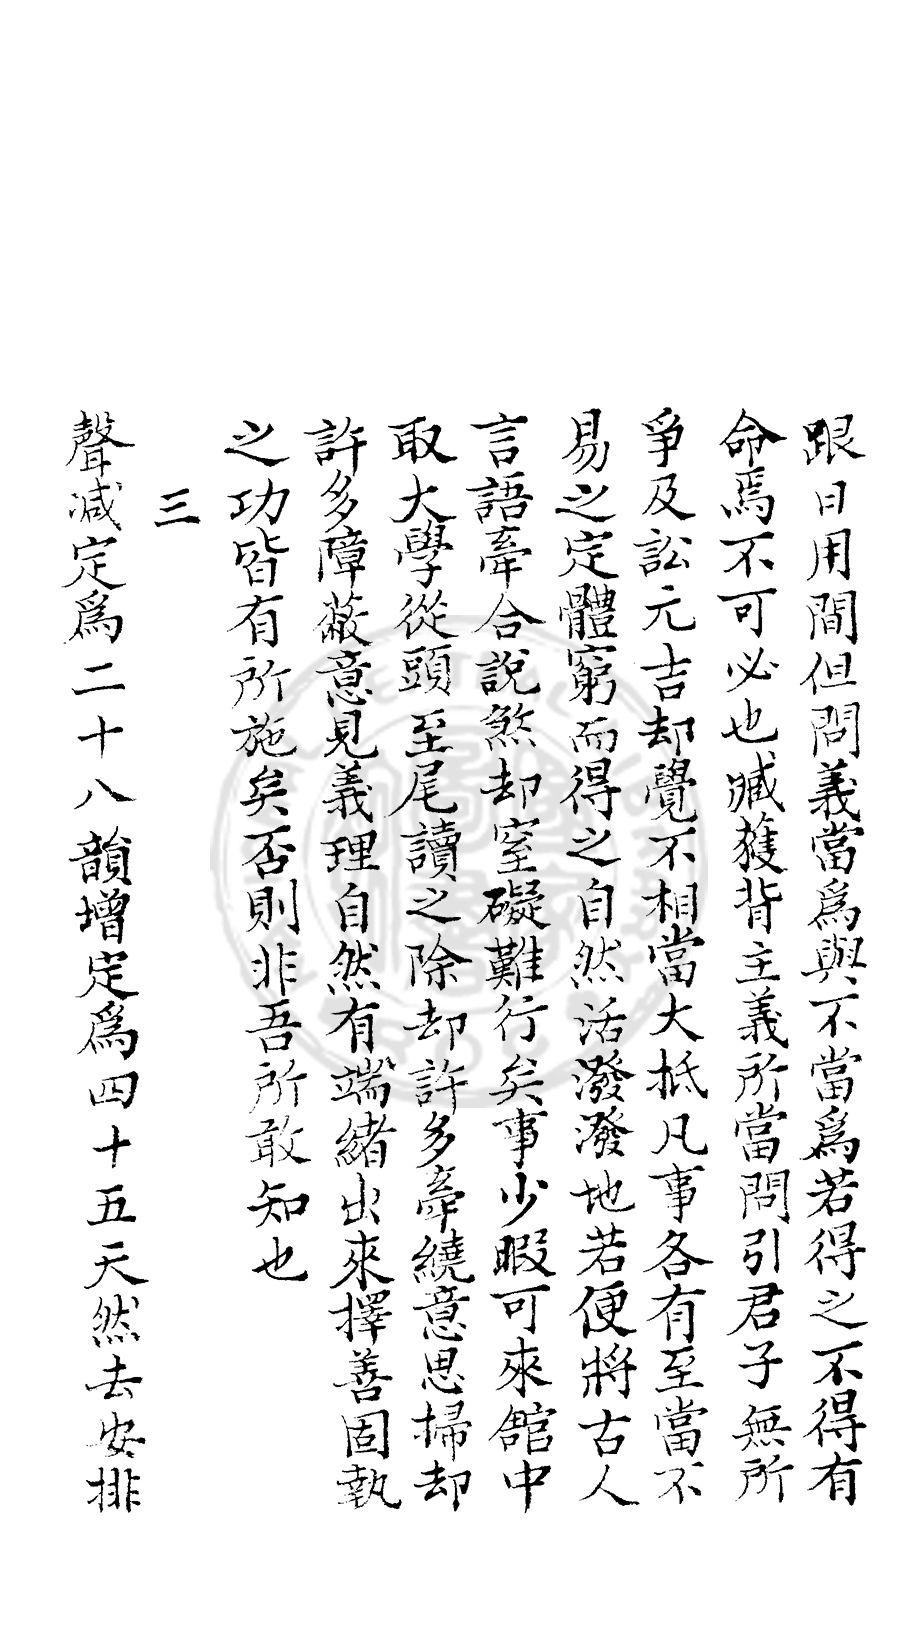 跟日用間但問義當爲與不當爲若得之不得有
命焉不可必也臧獲背主義所當問引君子無所
爭及訟元吉却覺不相當大抵凡事各有至當不
易之定體窮而得之自然活潑潑地若便將古人
言語牽合說煞却窒礙難行矣事少暇可來館中
取大學從頭至尾讀之除却許多牽繞意思掃却
許多障蔽意見義理自然有端緒出來擇善固執
之功皆有所施矣否則非吾所敢知也
三
聲减定爲二十八韻增定爲四十五天然去安排